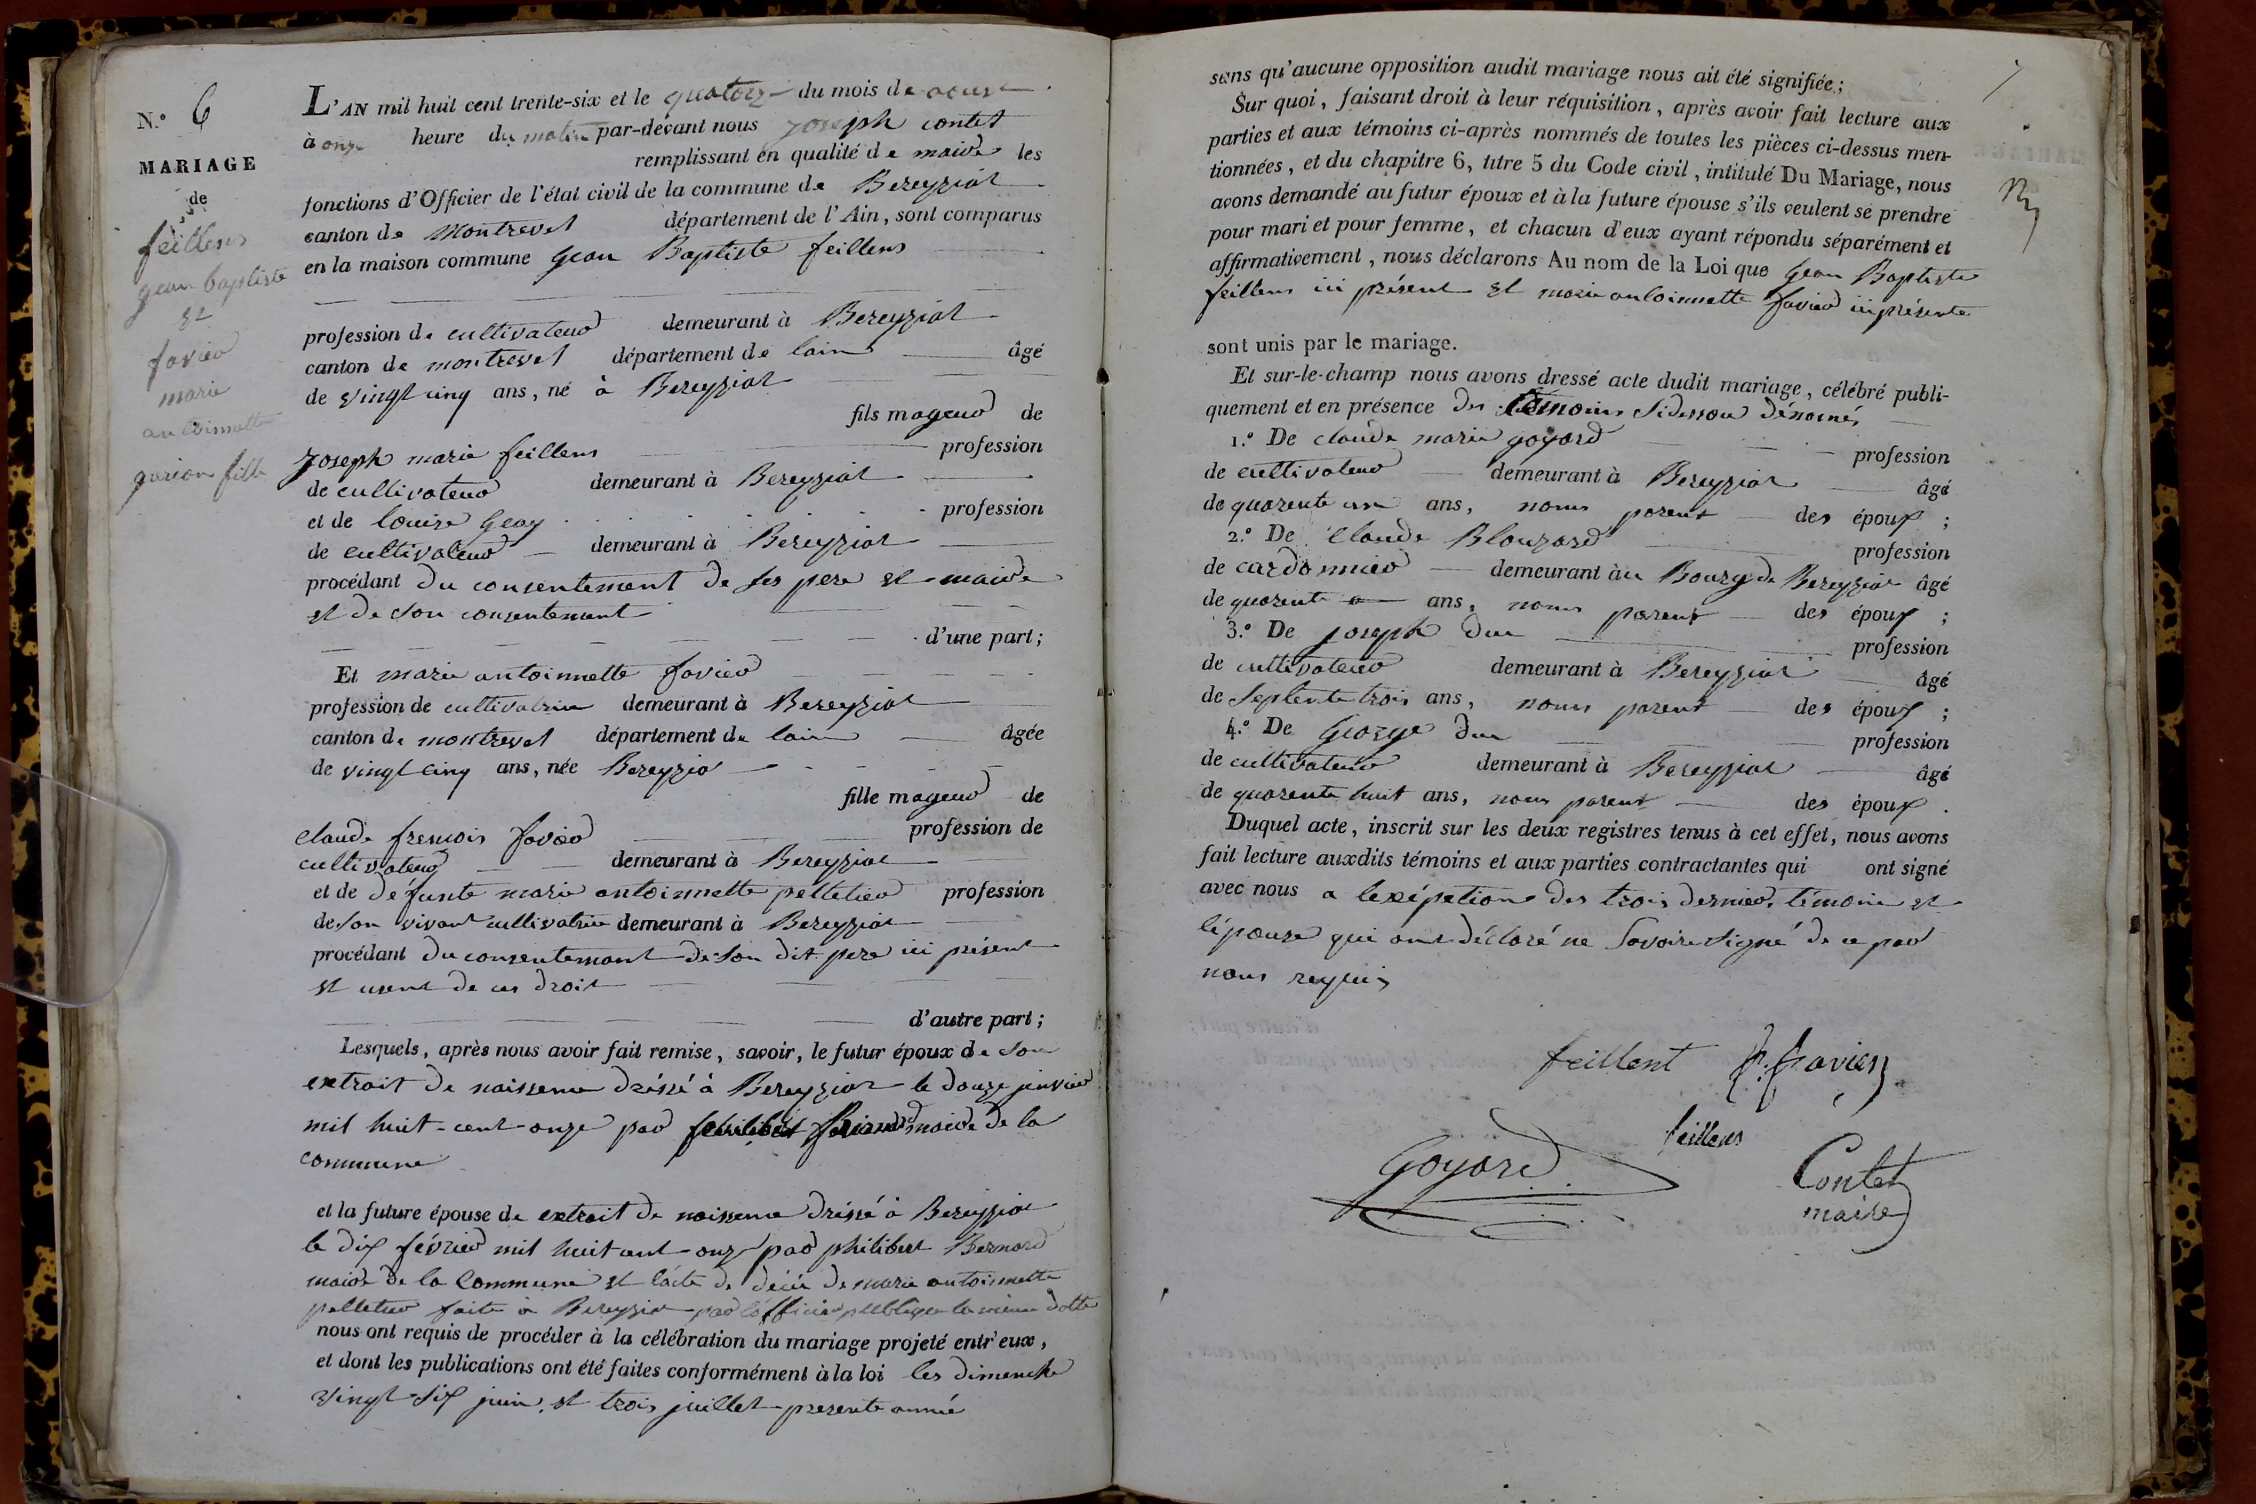 N.° 6
MARIAGE
de
feillens
gean baptiste
et
favier
marie
antoinnette
garcon fille
L'AN mil huit cent trente-six et le quatorze du mois de aoust
à onze heure du matin par-devant nous Joseph contet
remplissant en qualité de maire les
fonctions d'Officier de l'état civil de la commune de Bereyziat
canton de Montrevel département de l'Ain, sont comparus
en la maison commune gean Baptiste feillens
profession de cultivateur demeurant à Bereyziat
canton de montrevel département de lain âgé
de vingt cinq ans, né à Bereyziat
fils mageur de
Joseph marie feillens profession
de cultivateur demeurant à Bereyziat
et de louise Geay profession
de cultivateur demeurant à Bereyziat
procédant du consentement de ses pere et maire
et de son consentement
d'une part;
Et marie antoinnette favier
profession de cultivatrice demeurant à Bereyziat
canton de montrevel département de lain âgée
de vingt cinq ans, née Bereyzia
fille mageur de
claude frencois favier profession de
cultivateur demeurant à Bereyziat
et de défunte marie antoinnette pelletier profession
de son vivant cultivatrice demeurant à Bereyziat
procédant du consentement de son dit pere ici présent
et usent de ces droit
d'autre part;
Lesquels, après nous avoir fait remise, savoir, le futur époux de son
extrait de naissence dréssé à Bereyziat le douze jenvier
mil huit-cent-onze par maire de la
commune
et la future épouse de extrait de naissence dréssé à Bereyziat
le dix février mil huit cent-onze par philibert Bernard
maire de la Commune et lácte de décé de marie antoinnette
pelletier faite a Bereyziat par lófficier publique la meme datte
nous ont requis de procéder à la célébration du mariage projeté entr'eux,
et dont les publications ont été faites conformément à la loi les dimenche
vingt-six juin et trois juillet presente année
sans qu'aucune opposition audit mariage nous ait été signifiée;
Sur quoi, faisant droit à leur réquisition, après avoir fait lecture aux
parties et aux témoins ci-après nommés de toutes les pièces ci-dessus men-
tionnées, et du chapitre 6, titre 5 du Code civil, intitulé Du Mariage, nous
avons demandé au futur époux et à la future épouse s'ils veulent se prendre
pour mari et pour femme, et chacun d'eux ayant répondu séparément et
affirmativement, nous déclarons Au nom de la Loi que gean Baptiste
feillens ici présent et marie antoinnette favier ici présente
sont unis par le mariage.
Et sur-le-champ nous avons dressé acte dudit mariage, célébré publi-
quement et en présence des témoins sidessou dénomés
1.° De claude marie goyard profession
de cultivateur demeurant à Bereyziat âgé
de quarente un ans, nonm parent des époux;
2.° De Claude Blouzard profession
de cardonnier demeurant àu Bourg de Bereyziat âgé
de quarente ans, nonm parent des époux;
3.° De joseph duc profession
de cultivateur demeurant à Bereyziat âgé
de septente trois ans, nonm parent des époux;
4.° De George duc profession
de cultivateur demeurant à Bereyziat âgé
de quarente huit ans, nonm parent des époux.
Duquel acte, inscrit sur les deux registres tenus à cet effet, nous avons
fait lecture auxdits témoins et aux parties contractantes qui ont signé
avec nous a lexéption des trois dernier témoins et
lépouse qui ont déclaré ne savoir signé de ce par
nous requis
feillent f. favier
feillens
Goyard
Contet
maire